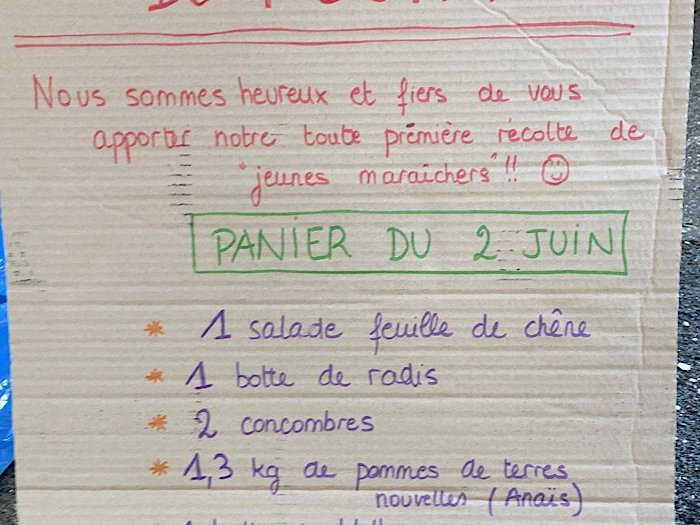 Nous sommes heureux et fiers de vous
apporter notre toute première récolte de
"jeunes maraîchers"!! ☺
PANIER DU 2 JUIN
* 1 salade feuille de chêne
* 1 botte de radis
* 2 concombres
* 1,3 kg de pommes de terres
nouvelles (Anaïs)